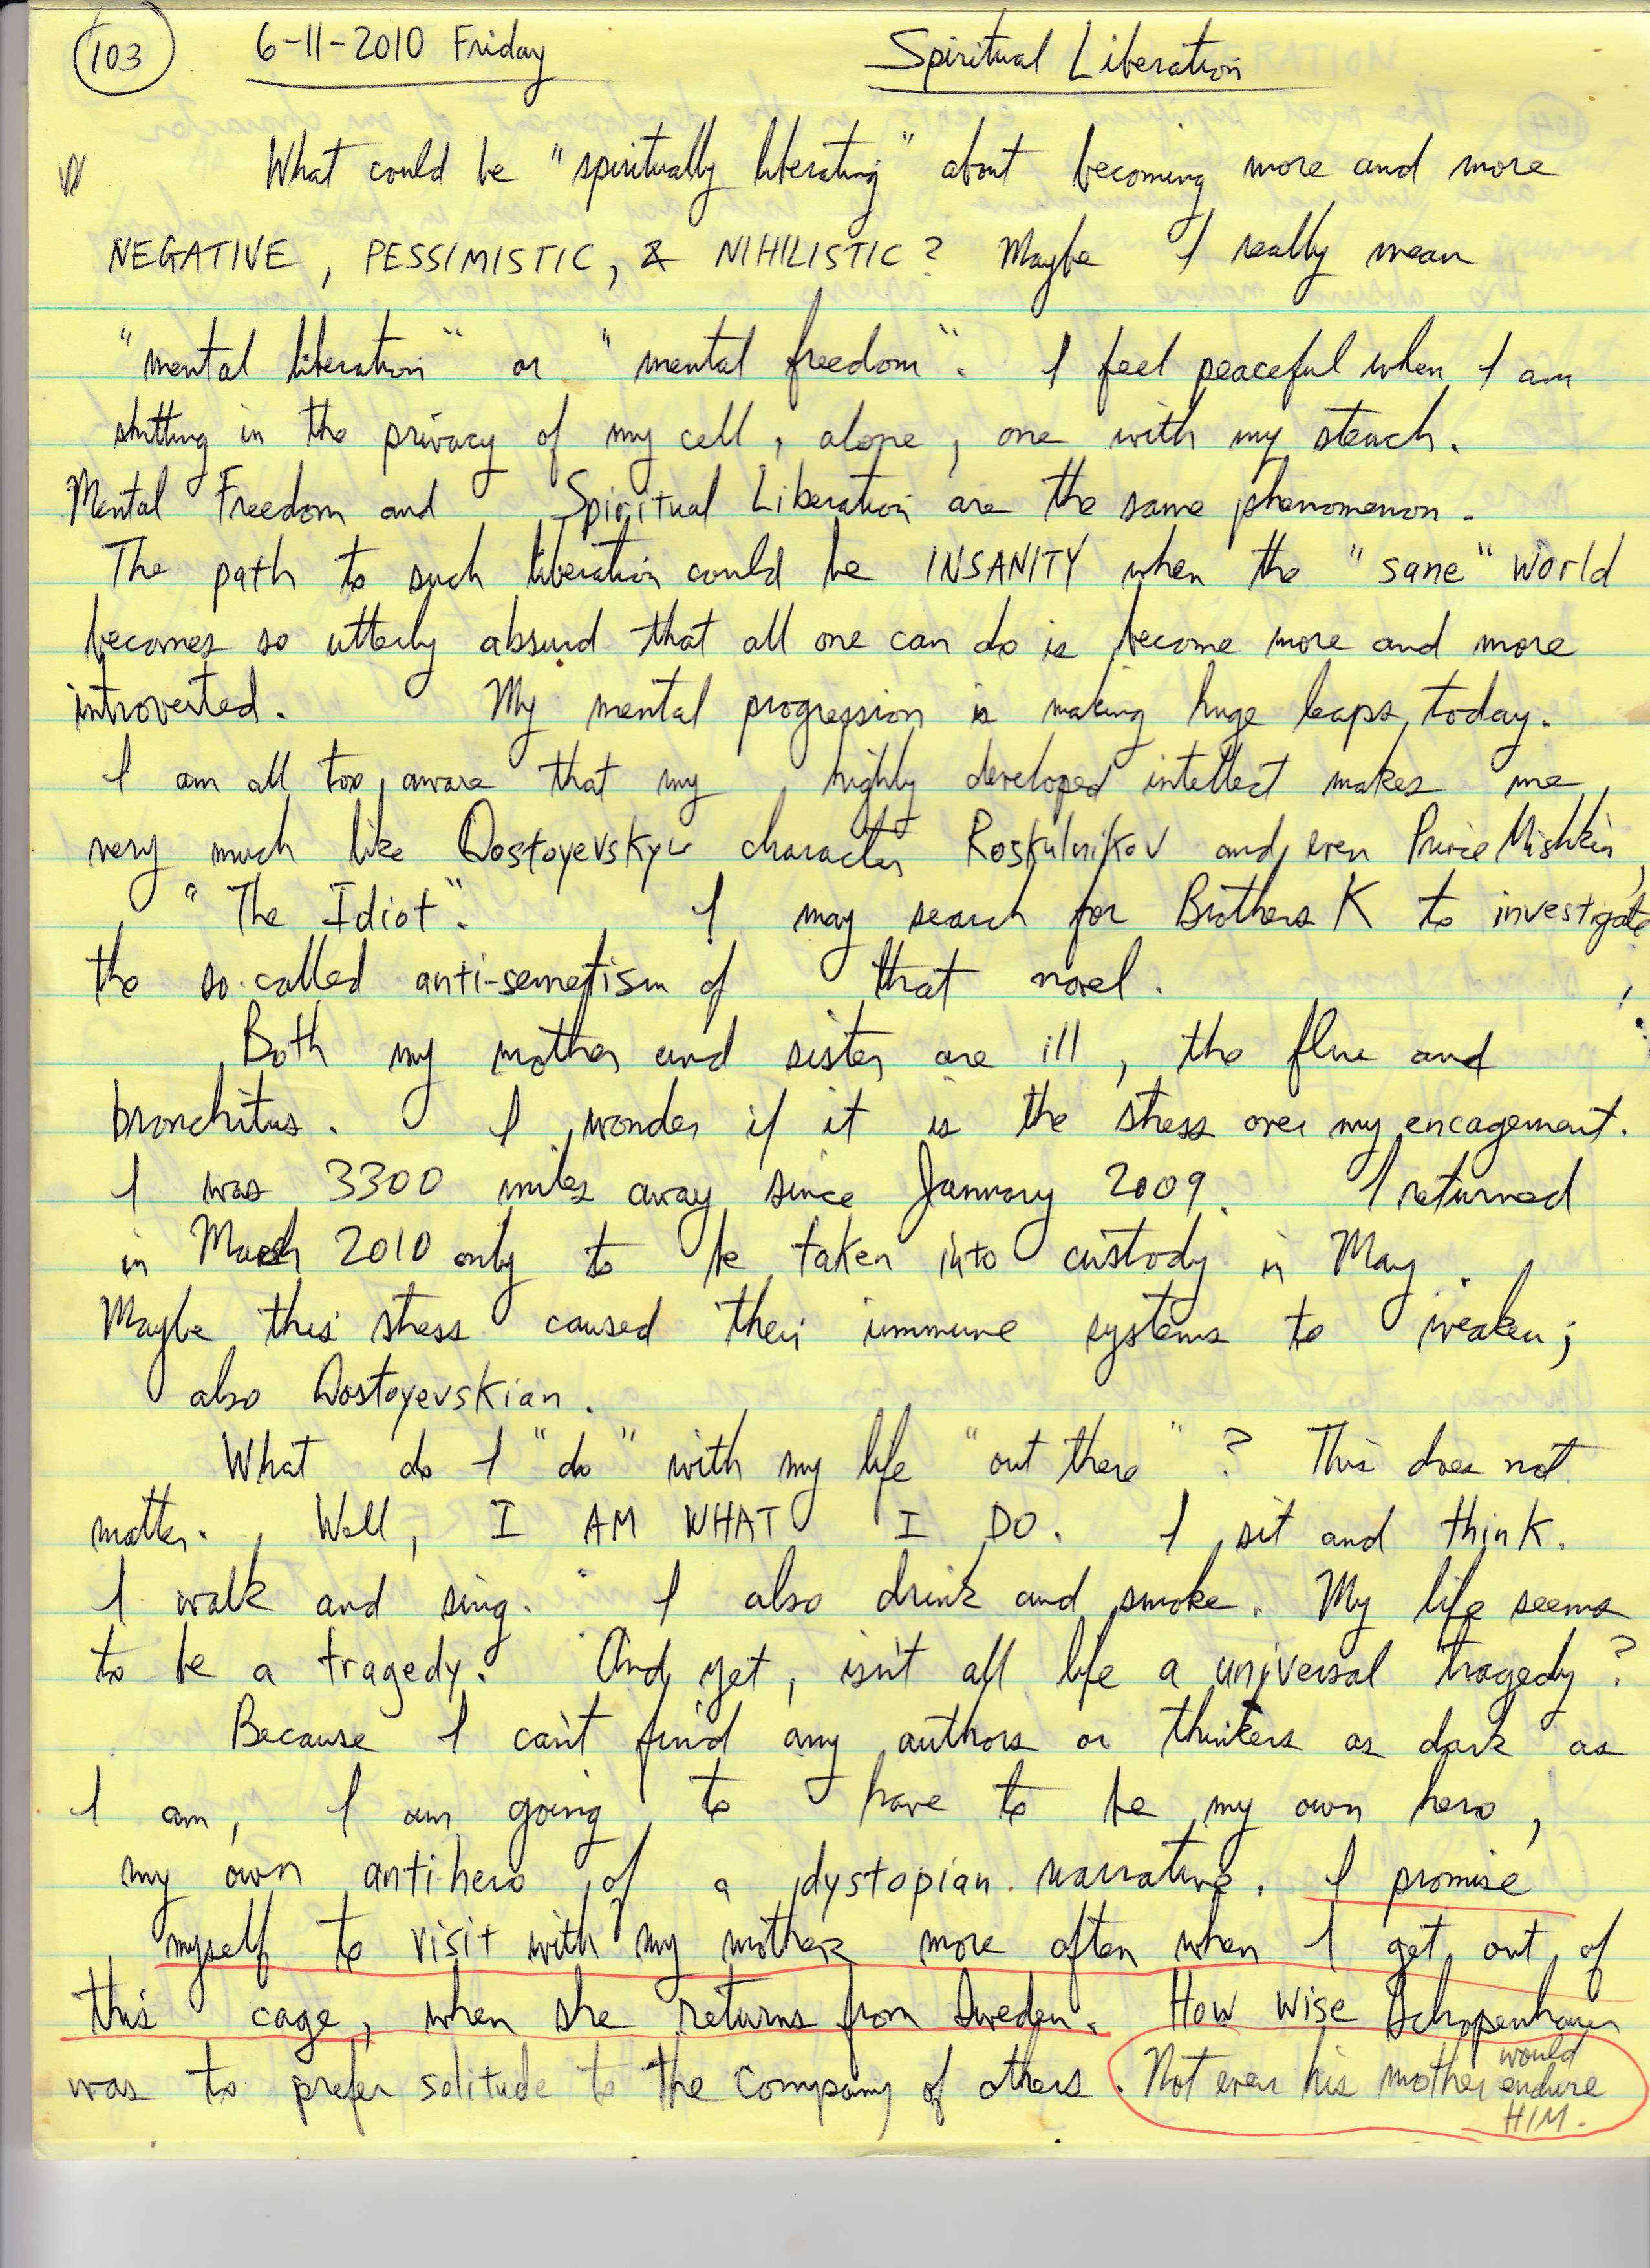 103 6-11-2010 Friday Spiritual Liberation
What could be "spiritually liberating" about becoming more and more
NEGATIVE, PESSIMISTIC, & NIHILISTIC? Maybe I really mean
"mental liberation" or "mental freedom". I feel peaceful when I am
shitting in the privacy of my cell, alone, one with my stench.
Mental Freedom and Spiritual Liberation are the same phenomenon.
The path to such liberation could be INSANITY when the "sane" world
becomes so utterly absurd that all one can do is become more and more
introverted. My mental progression is making huge leaps today.
I am all too aware that my highly developed intellect makes me
very much like Dostoyevsky's character Roskulnikov and even Prince Mishkin,
"The Idiot". I may search for Brothers K to investigate
the so-called anti-semetism of that novel.
Both my mother and sister are ill, the flue and
bronchitus. I wonder if it is the stress over my encagement.
I was 3300 miles away since January 2009. I returned
in March 2010 only to be taken into custody in May.
Maybe this stress caused their immune systems to weaken;
also Dostoyevskian.
What do I "do" with my life "out there"? This does not
matter. Well, I AM WHAT I DO. I sit and think.
I walk and sing. I also drink and smoke. My life seems
to be a tragedy. And yet, isn't all life a universal tragedy?
Because I can't find any authors or thinkers as dark as
I am, I am going to have to be my own hero,
my own antihero of a dystopian narrative. I promise
myself to visit with my mother more often when I get out of
this cage, when she returns from Sweden. How wise Schopenhauer
was to prefer solitude to the company of others. Not even his mother would endure HIM.